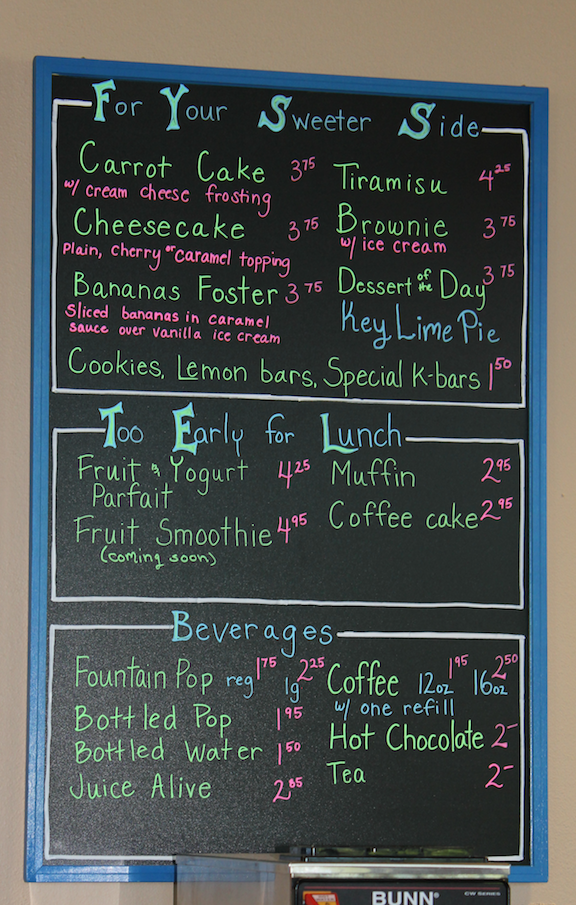 For Your Sweeter Side
Carrot Cake 3.75
w/ cream cheese frosting
Cheesecake 3.75
Plain, Cherry or Caramel topping
Bananas Foster 3.75
Sliced bananas in caramel
sauce over vanilla ice cream
Tiramisu 4.25
Brownie 3.75
w/ ice cream
Dessert of the Day 3.75
Key Lime Pie
Cookies, Lemon bars, Special K-bars 1.50
Too Early for Lunch
Fruit & Yogurt 4.25
Parfait
Fruit Smoothie 4.95
(coming soon)
Muffin 2.95
Coffee cake 2.95
Beverages
Fountain Pop reg 1.75 lg 2.25
Bottled Pop 1.95
Bottled Water 1.50
Juice Alive 2.85
Coffee 12oz 1.95 16oz 2.50
w/ one refill
Hot Chocolate 2-
Tea 2-
BUNN® CW SERIES